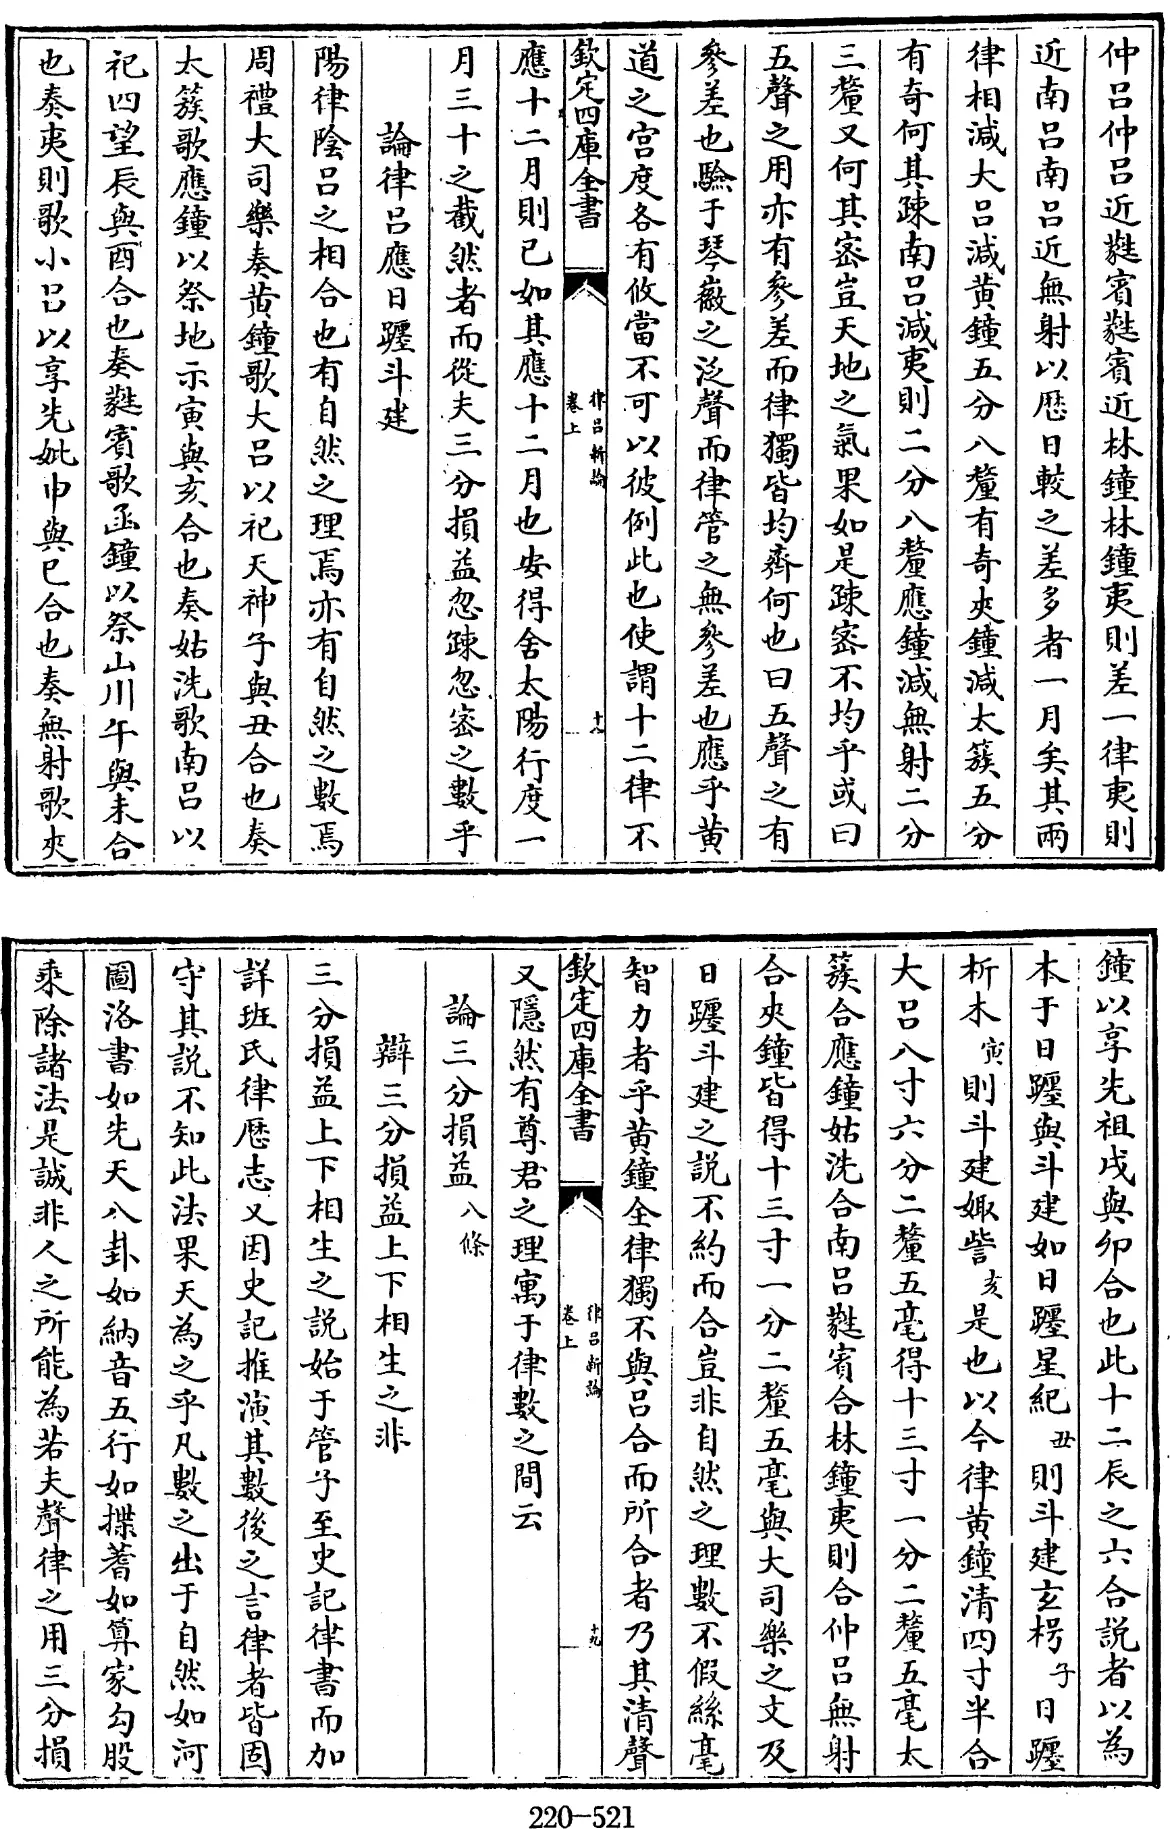 仲呂仲呂近蕤賓蕤賓近林鐘林鐘夷則差一律夷則
近南呂南呂近無射以歴日較之差多者一月矣其兩
律相減大呂減黄鐘五分八釐有奇夾鐘減太簇五分
有奇何其疎南呂減夷則二分八釐應鐘減無射二分
三釐又何其宻豈天地之氣果如是疎宻不均乎或曰
五聲之用亦有參差而律獨皆均齊何也曰五聲之有
參差也驗于琴徽之泛聲而律管之無參差也應乎黄
道之宫度各有攸當不可以彼例此也使謂十二律不
欽定四庫全書
律呂新論
卷上
十八
應十二月則已如其應十二月也安得舍太陽行度一
月三十之截然者而從夫三分損益忽疎忽宻之數乎
論律呂應日躔斗建
陽律陰呂之相合也有自然之理焉亦有自然之數焉
周禮大司樂奏黄鐘歌大呂以祀天神子與丑合也奏
太簇歌應鐘以祭地示寅與亥合也奏姑洗歌南呂以
祀四望辰與酉合也奏蕤賓歌函鐘以祭山川午與未合
也奏夷則歌小呂以享先妣申與巳合也奏無射歌夾
鐘以享先祖戌與卯合也此十二辰之六合說者以為
本于日躔與斗建如日躔星紀丑則斗建玄枵子日躔
析木寅則斗建娵訾亥是也以今律黄鐘清四寸半合
大呂八寸六分二釐五毫得十三寸一分二釐五毫太
簇合應鐘姑洗合南呂蕤賓合林鐘夷則合仲呂無射
合夾鐘皆得十三寸一分二釐五毫與大司樂之文及
日躔斗建之説不約而合豈非自然之理數不假絲毫
智力者乎黄鐘全律獨不與呂合而所合者乃其清聲
欽定四庫全書
律呂新論
卷上
十九
又隱然有尊君之理寓于律數之間云
論三分損益八條
辯三分損益上下相生之非
三分損益上下相生之説始于管子至史記律書而加
詳班氏律歴志又因史記推演其數後之言律者皆固
守其説不知此法果天為之乎凡數之出于自然如河
圖洛書如先天八卦如納音五行如揲蓍如算家勾股
乘除諸法是誠非人之所能為若夫聲律之用三分損
220-521